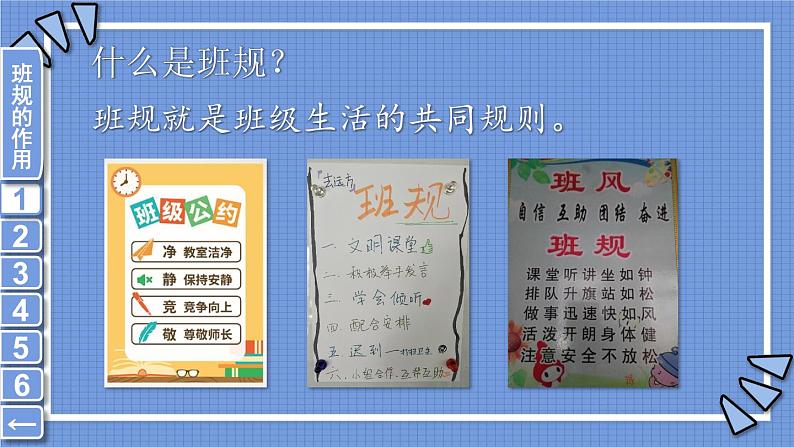 班规的作用
1
2
3
4
5
6
←
什么是班规？
班规就是班级生活的共同规则。
班级公约
净 教室洁净
静 保持安静
竞 竞争向上
敬 尊敬师长
『去远方』
班规
一、文明课堂
二、积极举手发言
三、学会倾听
四、配合安排
五、迟到——
六、小组合作、互帮互助
班风
自信 互助 团结 奋进
班规
课堂听讲坐如钟
排队升旗站如松
做事迅速快如风
活泼开朗身体健
注意安全不放松